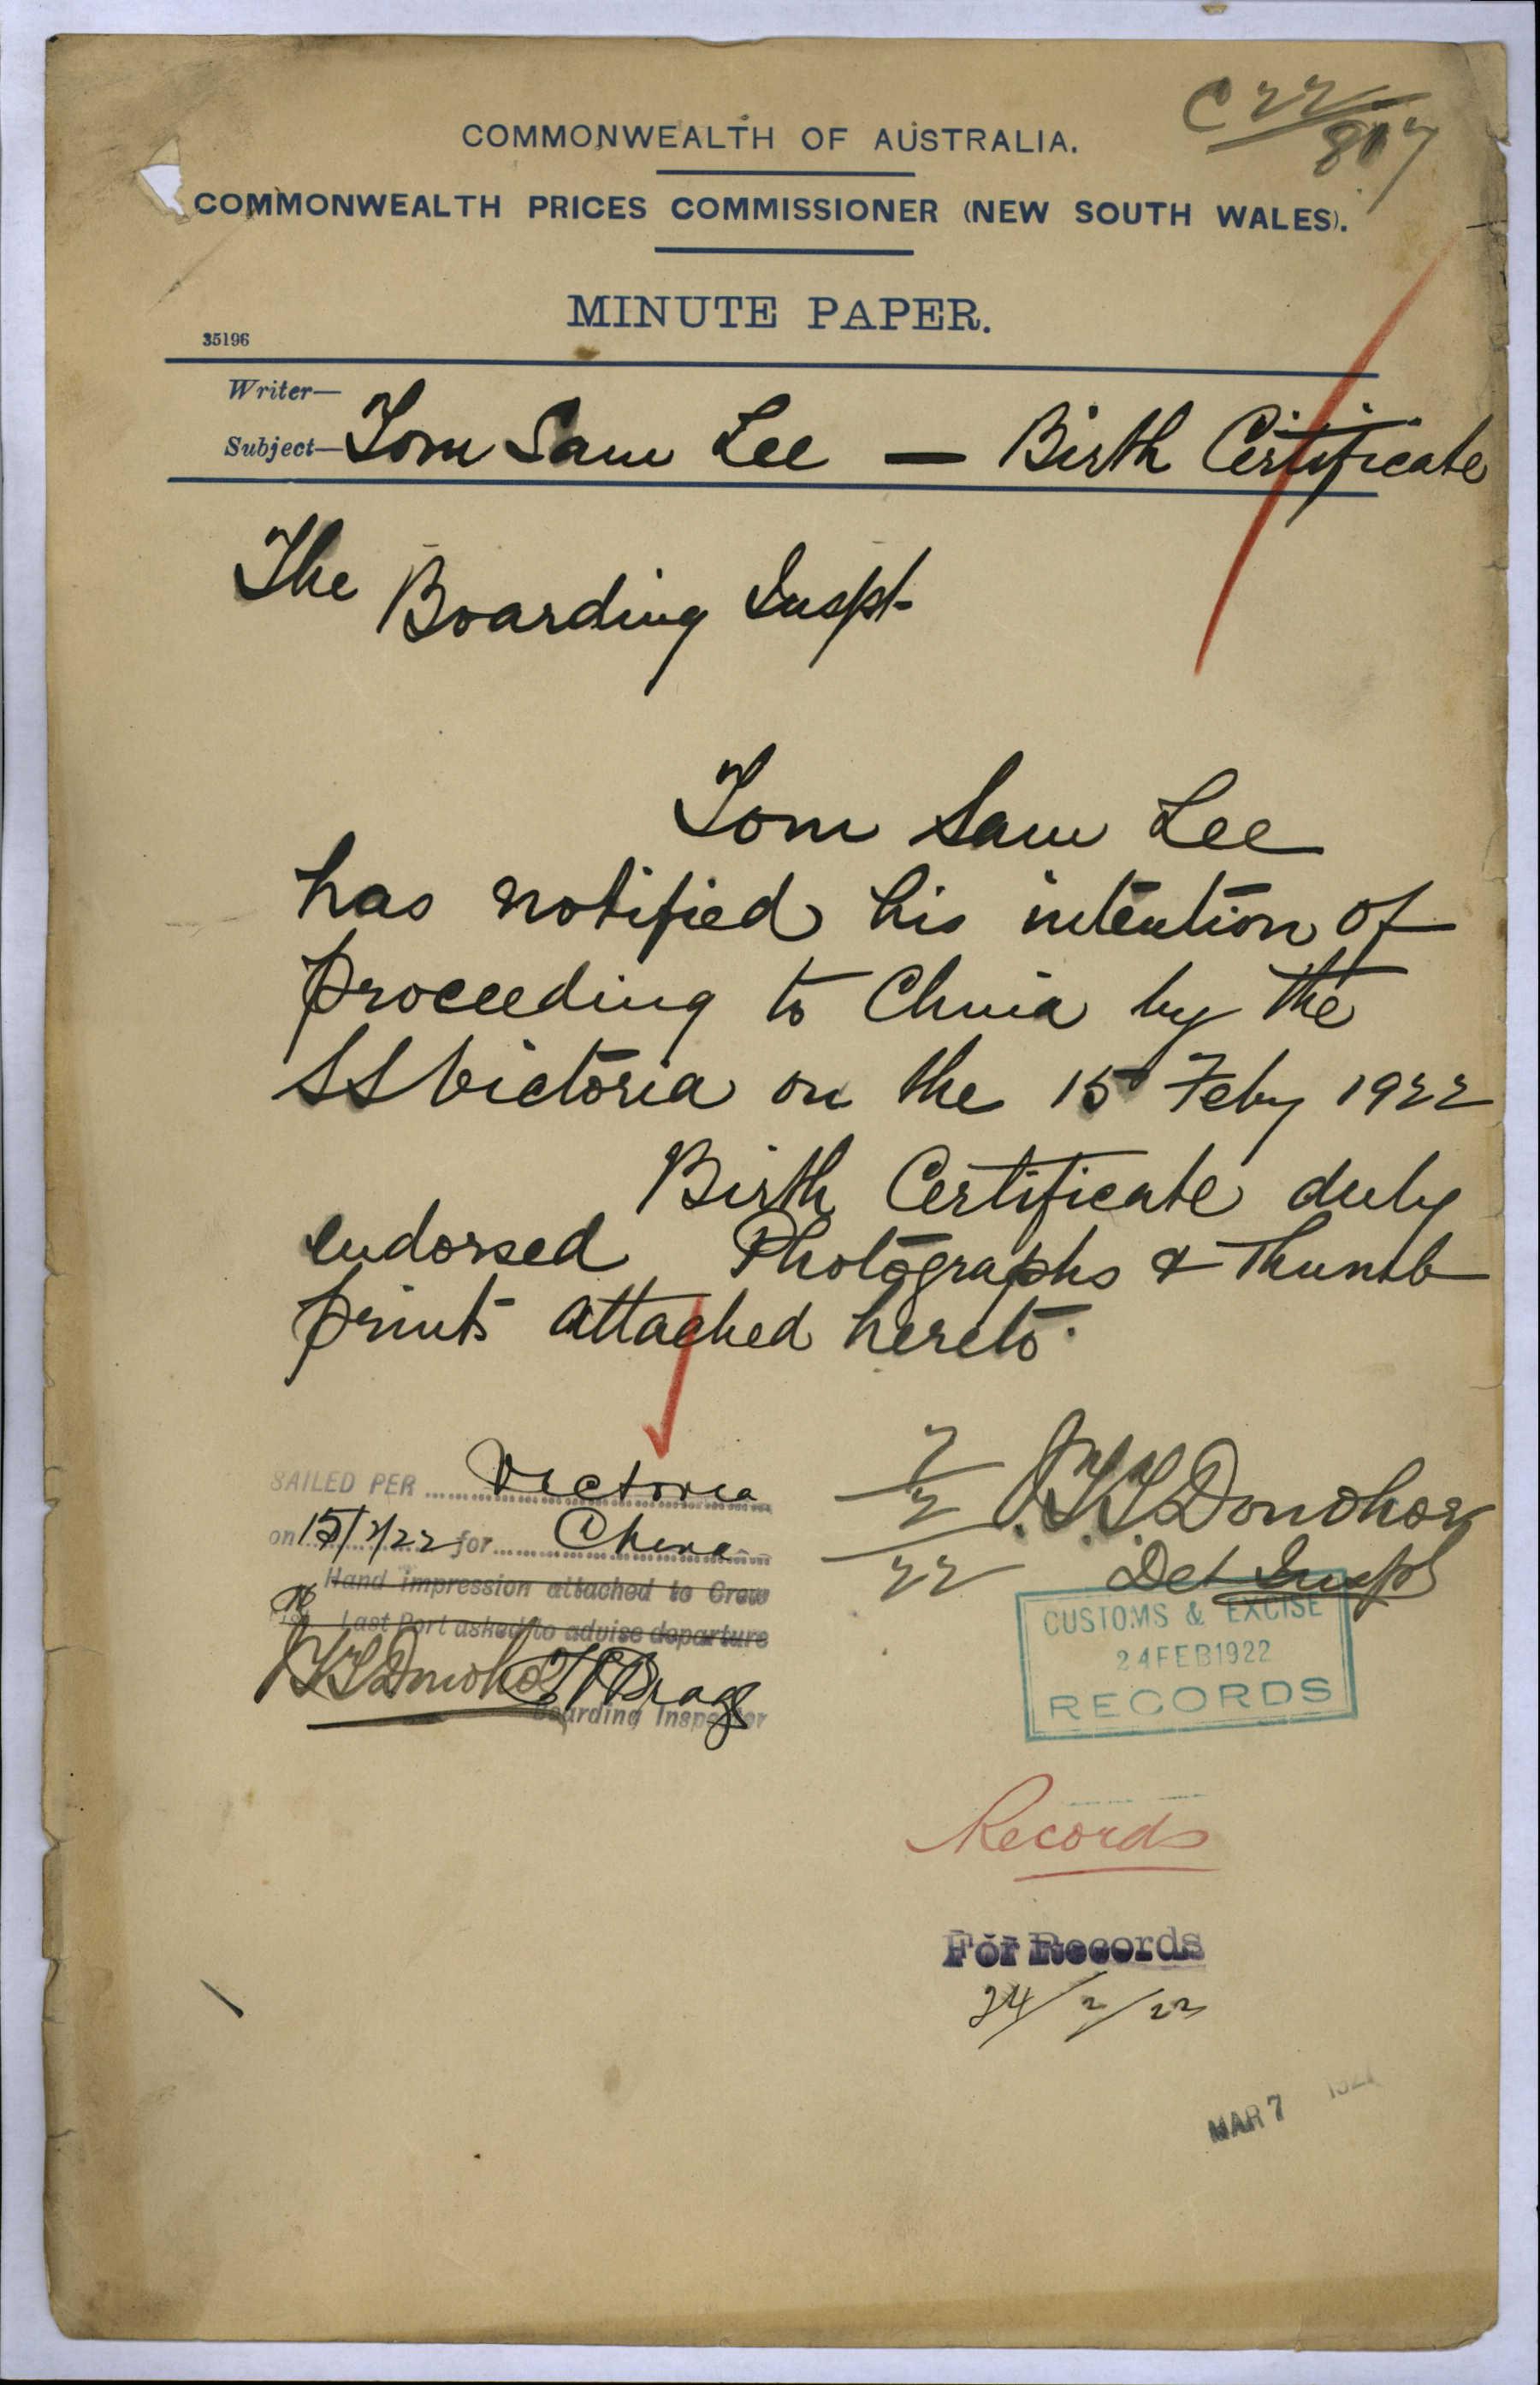 C 22/817
COMMONWEALTH OF AUSTRALIA.
COMMONWEALTH PRICES COMMISSIONER (NEW SOUTH WALES).
MINUTE PAPER.
35196
Writer—
Subject— Tom Sam Lee — Birth Certificate
The Boarding Inspt.
Tom Sam Lee
has notified his intention of
proceeding to China by the
SS Victoria on the 15 Feby 1922
Birth Certificate duly
endorsed Photographs & Thumb
prints attached hereto.
SAILED PER Victoria
on 15/2/22 for China
Hand impression attached to Crew
Last Port asked to advise departure
Boarding Inspector
7/2/22
Donohoe
Det Inspr
CUSTOMS & EXCISE
24 FEB 1922
RECORDS
Records
For Records
24/2/22
MAR 7